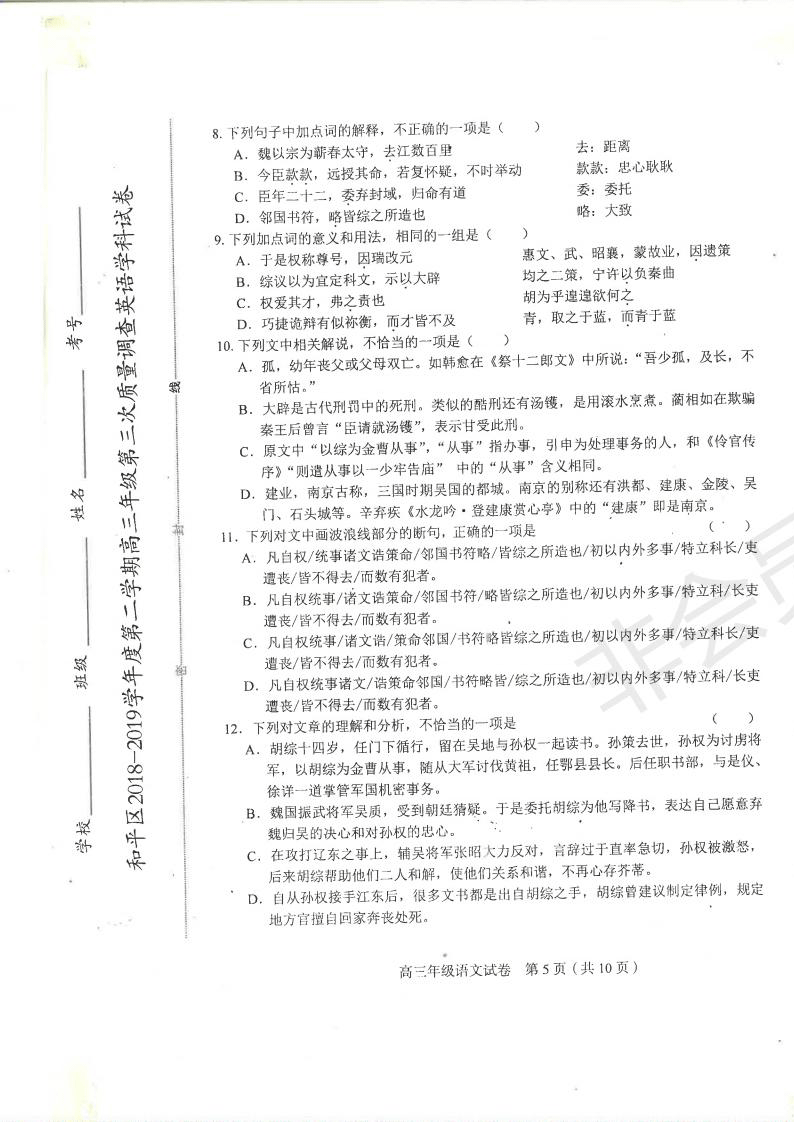 和平区2018-2019学年度第二学期高三年级第三次质量调查英语学科试卷
学校 班级 姓名 考号
密 封 线
8. 下列句子中加点词的解释，不正确的一项是（ ）
A．魏以宗为蕲春太守，去江数百里 去：距离
B．今臣款款，远授其命，若复怀疑，不时举动 款款：忠心耿耿
C．臣年二十二，委弃封域，归命有道 委：委托
D．邻国书符，略皆综之所造也 略：大致
9. 下列加点词的意义和用法，相同的一组是（ ）
A．于是权称尊号，因瑞改元 惠文、武、昭襄，蒙故业，因遗策
B．综议以为宜定科文，示以大辟 均之二策，宁许以负秦曲
C．权爱其才，弗之责也 胡为乎遑遑欲何之
D．巧捷诡辩有似祢衡，而才皆不及 青，取之于蓝，而青于蓝
10. 下列文中相关解说，不恰当的一项是（ ）
A．孤，幼年丧父或父母双亡。如韩愈在《祭十二郎文》中所说：“吾少孤，及长，不
省所怙。”
B．大辟是古代刑罚中的死刑。类似的酷刑还有汤镬，是用滚水烹煮。蔺相如在欺骗
秦王后曾言“臣请就汤镬”，表示甘受此刑。
C．原文中“以综为金曹从事”，“从事”指办事，引申为处理事务的人，和《伶官传
序》“则遣从事以一少牢告庙” 中的“从事”含义相同。
D．建业，南京古称，三国时期吴国的都城。南京的别称还有洪都、建康、金陵、吴
门、石头城等。辛弃疾《水龙吟·登建康赏心亭》中的“建康”即是南京。
11．下列对文中画波浪线部分的断句，正确的一项是 （ ）
A．凡自权/统事诸文诰策命/邻国书符略/皆综之所造也/初以内外多事/特立科长/吏
遭丧/皆不得去/而数有犯者。
B．凡自权统事/诸文诰策命/邻国书符/略皆综之所造也/初以内外多事/特立科/长吏
遭丧/皆不得去/而数有犯者。
C．凡自权统事/诸文诰/策命邻国/书符略皆综之所造也/初以内外多事/特立科长/吏
遭丧/皆不得去/而数有犯者。
D．凡自权统事诸文/诰策命邻国/书符略皆/综之所造也/初以内外多事/特立科/长吏
遭丧/皆不得去/而数有犯者。
12．下列对文章的理解和分析，不恰当的一项是 （ ）
A．胡综十四岁，任门下循行，留在吴地与孙权一起读书。孙策去世，孙权为讨虏将
军，以胡综为金曹从事，随从大军讨伐黄祖，任鄂县县长。后任职书部，与是仪、
徐详一道掌管军国机密事务。
B．魏国振武将军吴质，受到朝廷猜疑。于是委托胡综为他写降书，表达自己愿意弃
魏归吴的决心和对孙权的忠心。
C．在攻打辽东之事上，辅吴将军张昭大力反对，言辞过于直率急切，孙权被激怒，
后来胡综帮助他们二人和解，使他们关系和谐，不再心存芥蒂。
D．自从孙权接手江东后，很多文书都是出自胡综之手，胡综曾建议制定律例，规定
地方官擅自回家奔丧处死。
高三年级语文试卷 第 5 页（共 10 页）
非会员